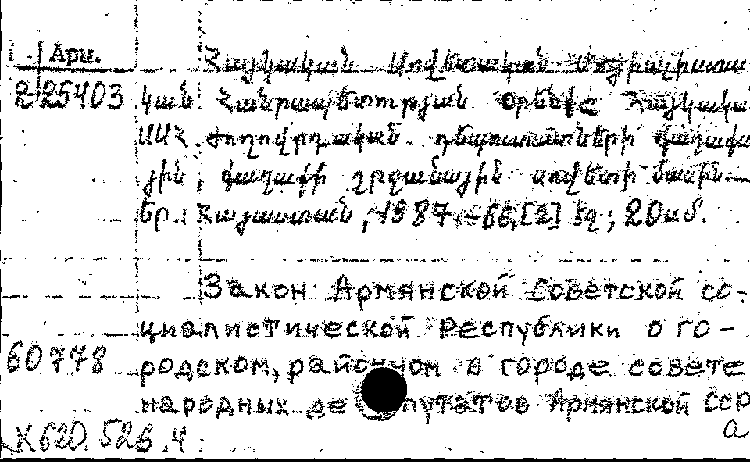 Арм.
Հայկական Սովետական Սոցիալիստա
225403 կան Հանրապետության Օրենքը Հայկակա
ՍՍՀ Ժողովրդական դեպուտատների քաղաքա
յին, քաղաքի շրջանային սովետի մասին.—
Եր.: Հայաստան, 1987.— 66, [2] էջ; 20սմ.
Закон Армянской Советской со-
циалистической Республики о го-
60778 родском, районном в городе совете
народных де путатов Армянской ССР
X620.526.4 а